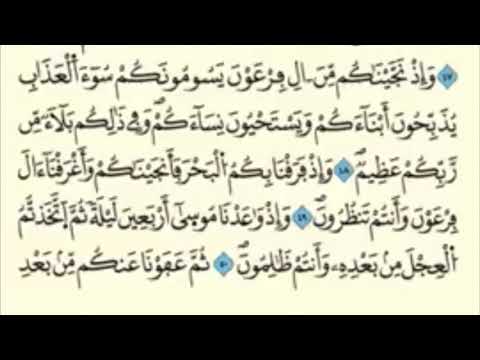 ٤٧ وَإِذْ نَجَّيْنَٰكُم مِّنَ ءَالِ فِرْعَوْنَ يَسُومُونَكُمْ سُوٓءَ اَ۬لْعَذَابِ
يُذَبِّحُونَ أَبْنَآءَكُمْ وَيَسْتَحْيُونَ نِسَآءَكُمْۖ وَفِے ذَٰلِكُم بَلَآءٌ مِّن
رَّبِّكُمْ عَظِيمٌۖ ٤٨ وَإِذْ فَرَقْنَا بِكُمُ اُ۬لْبَحْرَ فَأَنجَيْنَٰكُمْ وَأَغْرَقْنَآ ءَالَ
فِرْعَوْنَ وَأَنتُمْ تَنظُرُونَۖ ٤٩ وَإِذْ وَٰعَدْنَا مُوس۪يٰٓ أَرْبَعِينَ لَيْلَةٗ ثُمَّ اَ۪تَّخَذتُّمُ
اُ۬لْعِجْلَ مِنۢ بَعْدِهِۦ وَأَنتُمْ ظَٰلِمُونَۖ ٥٠ ثُمَّ عَفَوْنَا عَنكُم مِّنۢ بَعْدِ